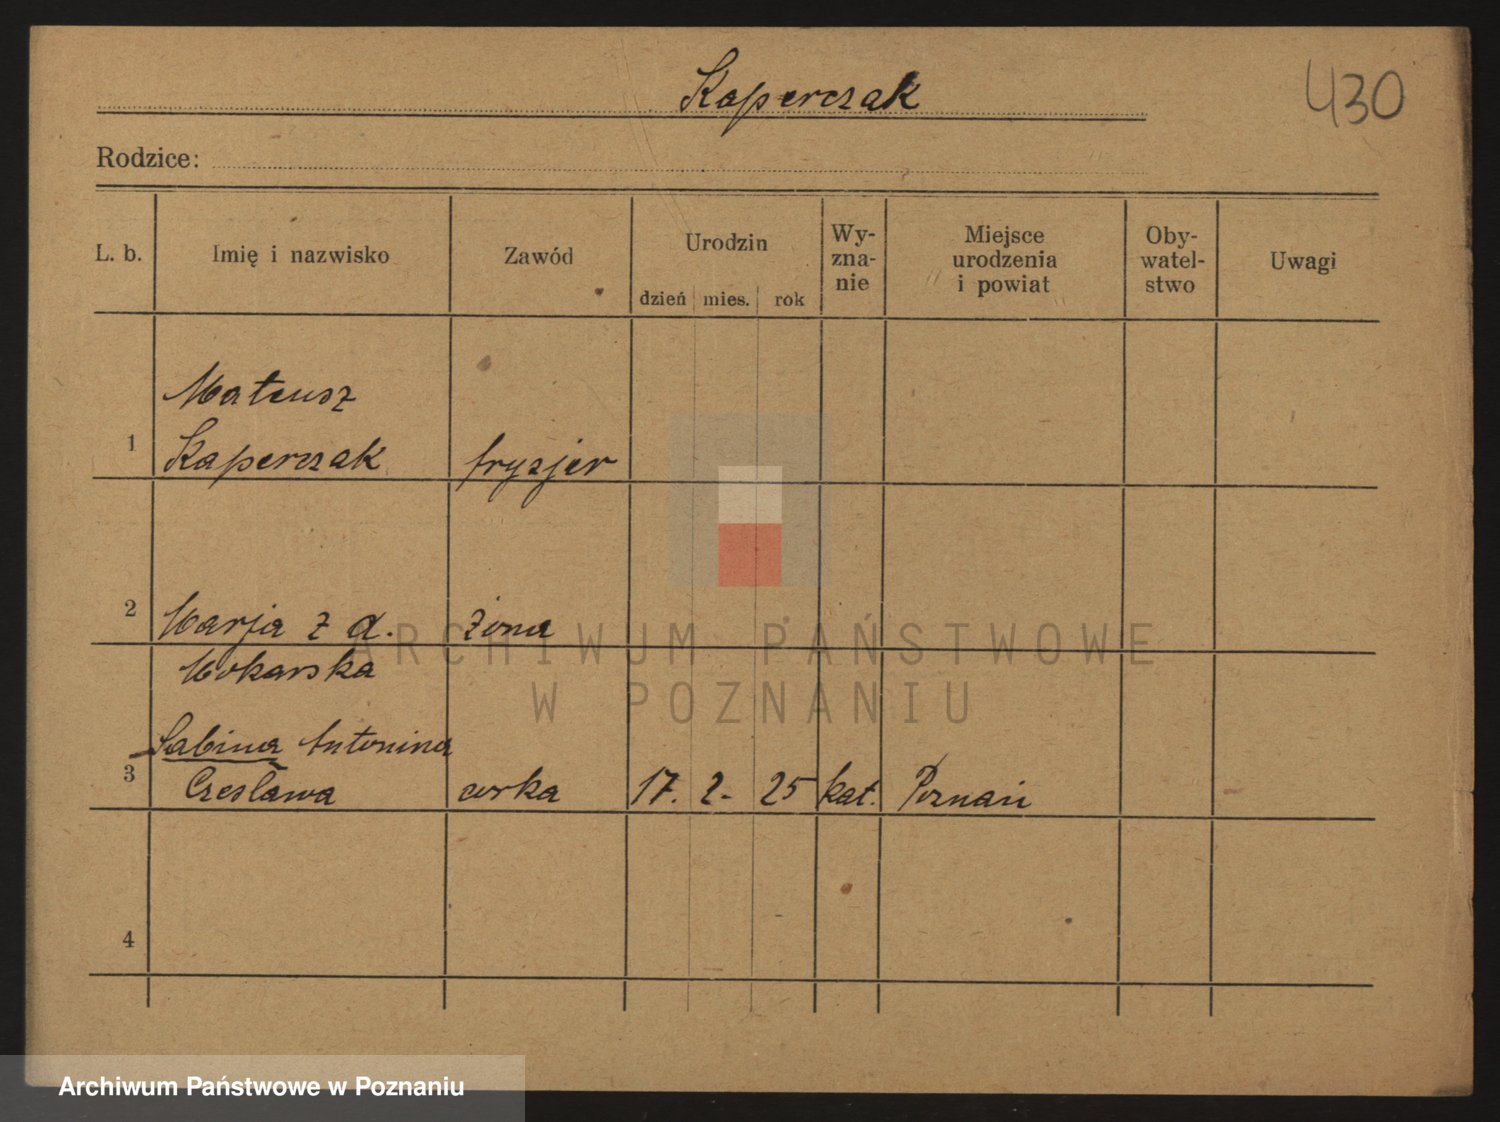 Kaperczak
430
Rodzice:
L. b.
Imię i nazwisko
Zawód
Urodzin
dzień
mies.
rok
Wy-
zna-
nie
Miejsce
urodzenia
i powiat
Oby-
watel-
stwo
Uwagi
Mateusz
1 Kaperczak fryzjer
2 Marja z d. żona
Mokarska
Sabina Antonina
3 Czesława corka 17. 2. 25 kat. Poznań
4
ARCHIWUM PAŃSTWOWE
W POZNANIU
Archiwum Państwowe w Poznaniu